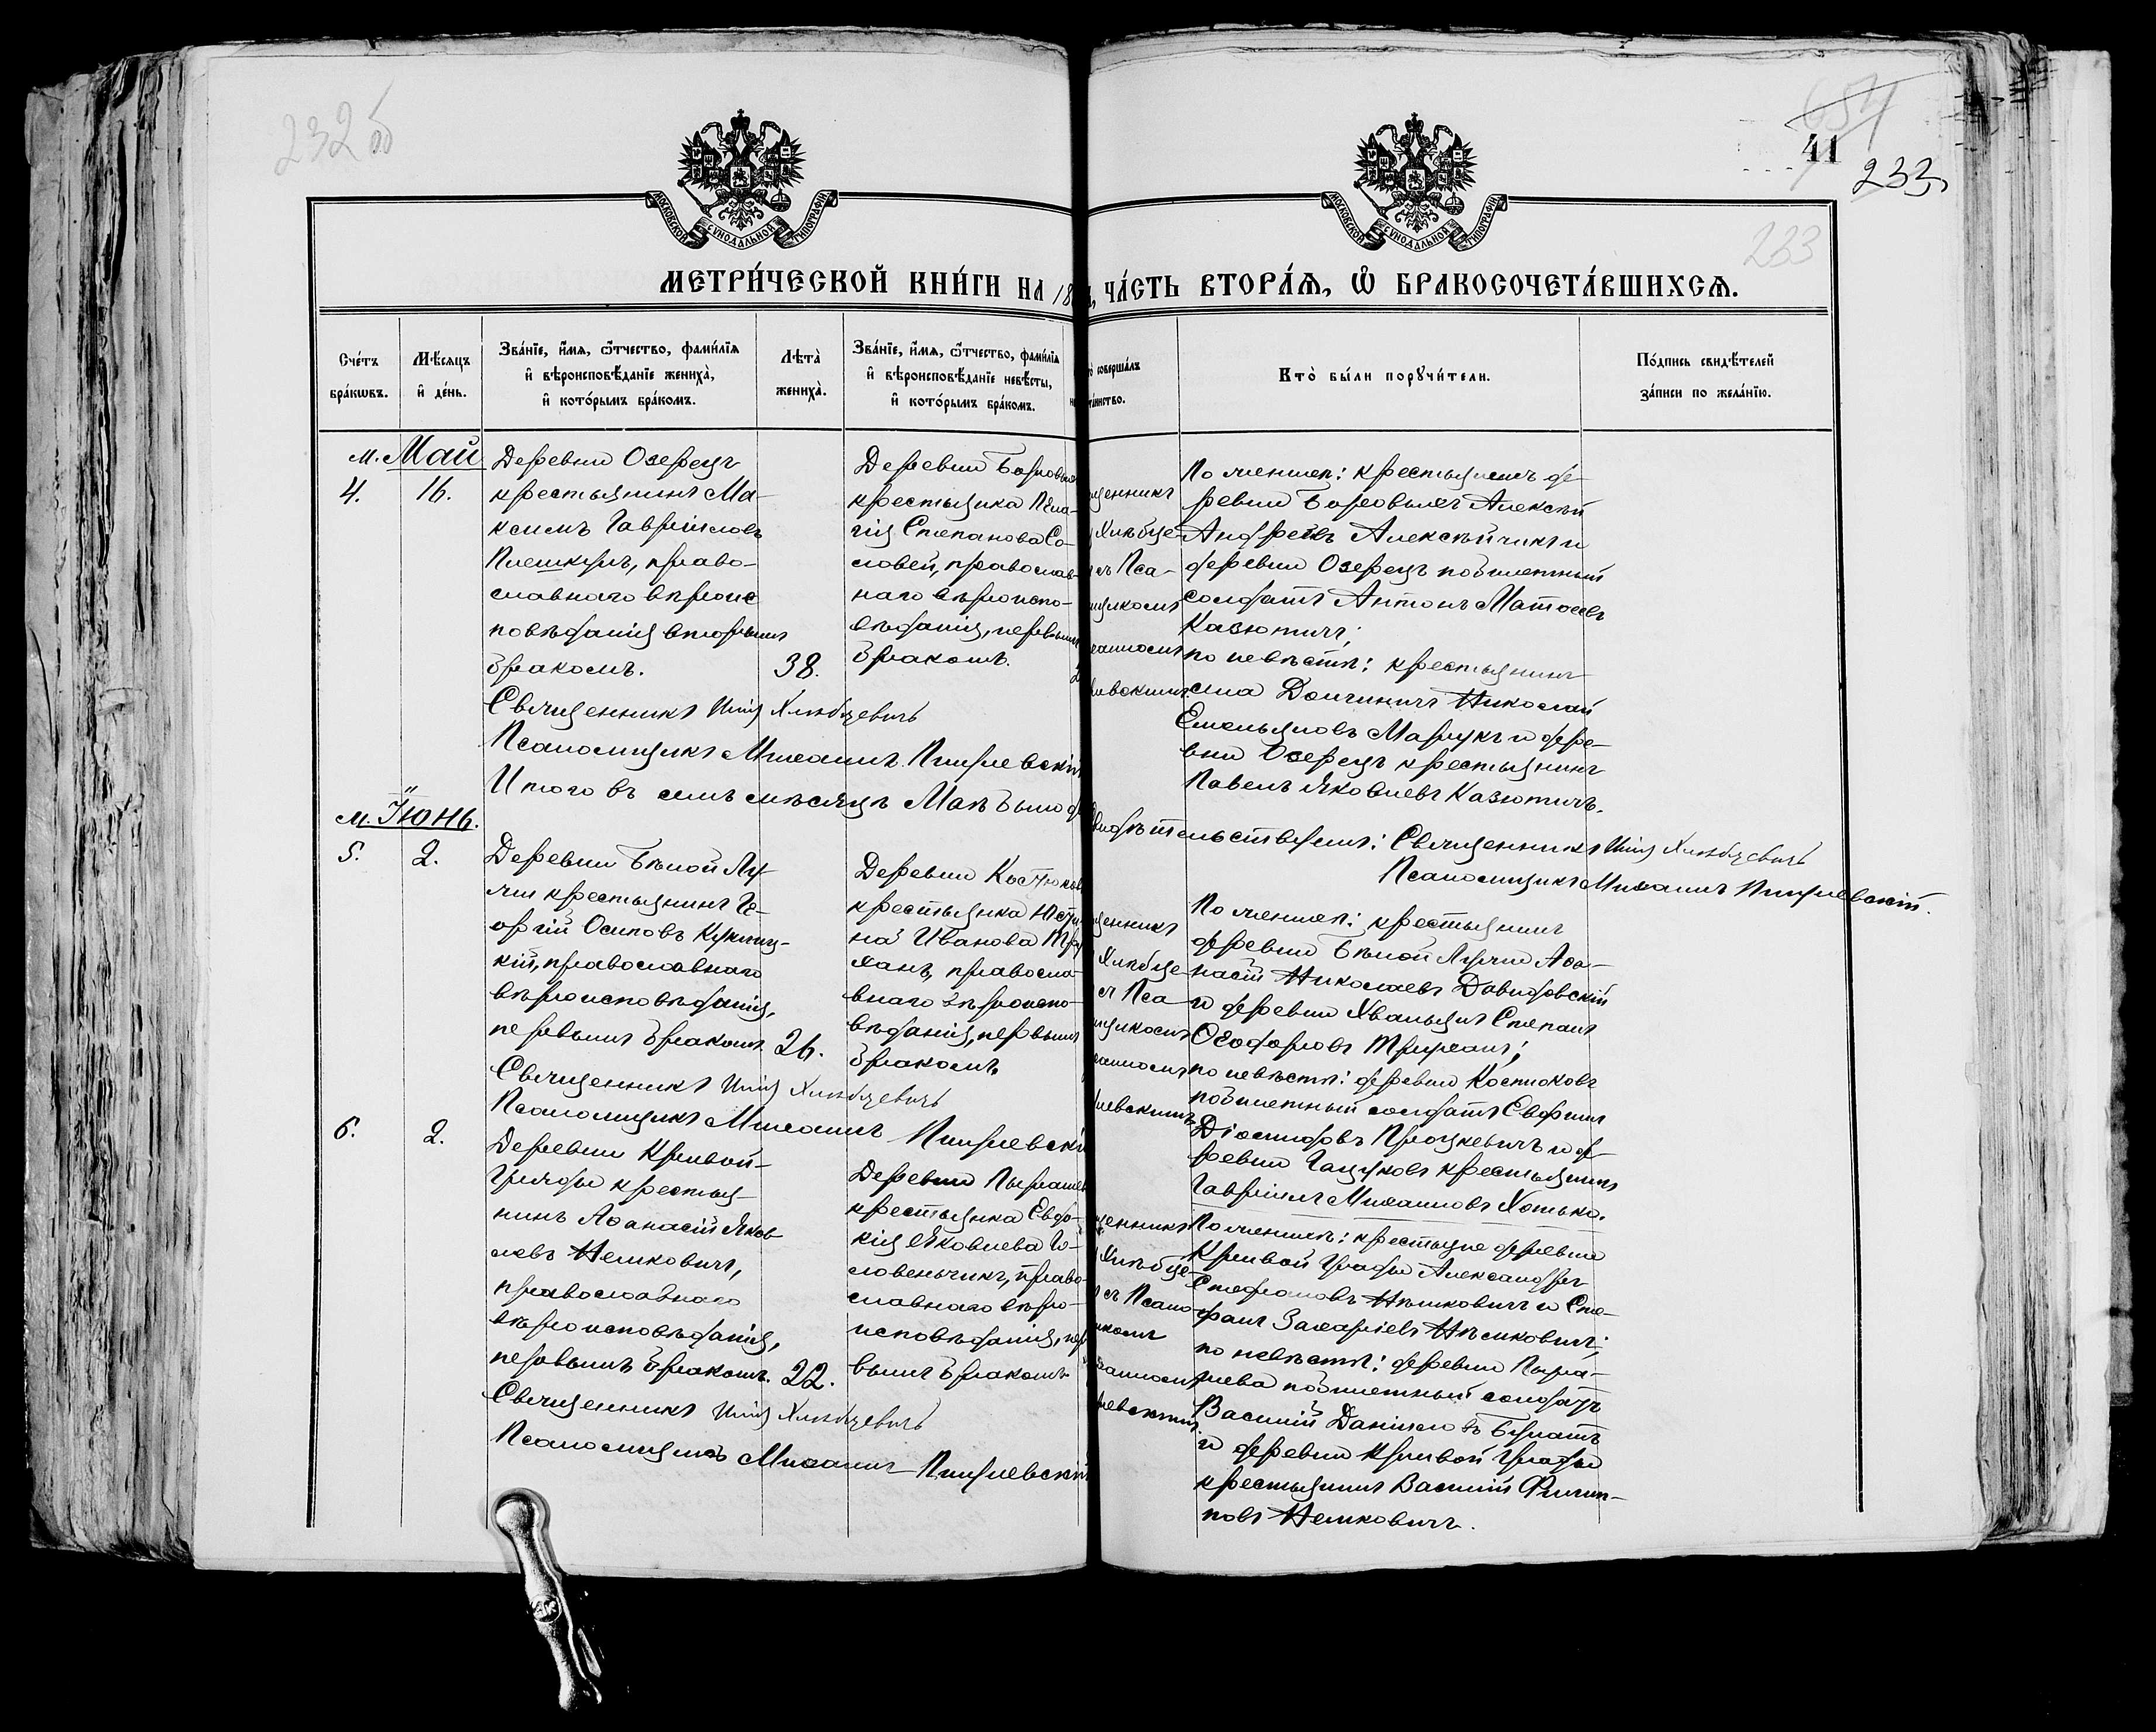 232 об
41
233
233
МОСКОВСКОЙ СУНОДАЛЬНОЙ ТИПОГРАФІИ
МОСКОВСКОЙ СУНОДАЛЬНОЙ ТИПОГРАФІИ
МЕТРИ́ЧЕСКОЙ КНИ́ГИ НА 18
ЧА́СТЬ ВТОРА́Я, Ѿ БРАКОСОЧЕТА́ВШИХСЯ.
Сче́тъ
бра́кѡвъ.
Мѣ́сяцъ
и҆ де́нь.
Зва́нїе, и҆́мя, ѻ҆́тчество, фами́лїя
и҆ вѣроисповѣ́данїе жениха̀,
и҆ кото́рымъ бра́комъ.
Лѣта̀
жениха̀.
Зва́нїе, и҆́мя, ѻ҆́тчество, фами́лїя
и҆ вѣроисповѣ́данїе невѣ́сты,
и҆ кото́рымъ бра́комъ.
соверша́лъ
та́инство.
Кто̀ бы́ли порꙋчи́тели.
По́дпись свидѣ́телей
за́писи по жела́нїю.
м. Май
4.
16.
Деревни Озерецъ
крестьянинъ Ма-
ксимъ Гавріиловъ
Плешкунъ, право-
славнаго вѣроис
повѣданія вторымъ
бракомъ.
38.
Деревни Боровы
крестьянка Пела-
гія Степанова Со-
ловей, православ-
наго вѣроиспо-
вѣданія, первымъ
бракомъ.
щенникъ
Хлѣбце-
съ Пса-
щикомъ
хаиломъ
левскимъ.
По женихѣ: крестьянинъ де-
ревни Боровыхъ Алексѣй
Андреевъ Алексѣйчикъ и
деревни Озерецъ побилетный
солдатъ Антонъ Матѳеевъ
Казютичъ;
по невѣстѣ: крестьянинъ
села Долгиничъ Николай
Емельяновъ Марукъ и дере-
вни Озерецъ крестьянинъ
Павелъ Яковлевъ Казютичъ.
Священникъ Илія Хлѣбцевичъ
Псаломщикъ Михаилъ
Итого въ семъ мѣсяцѣ Маѣ было
Священникъ Илія Хлѣбцевичъ
Псаломщикъ Михаилъ
м. Іюнь.
5.
2.
Деревни Бѣлой Лу-
жи крестьянинъ Ге-
оргій Осиповъ
кій, православнаго
вѣроисповѣданія,
первымъ бракомъ.
26.
Деревни Костюков
крестьянка Юсти-
на Иванова
ханъ, правосла-
внаго вѣроиспо-
вѣданія, первымъ
бракомъ.
щенникъ
Хлѣбце-
съ Пса
щикомъ
хаиломъ
левскимъ
По женихѣ: крестьянинъ
деревни Бѣлой Лужи Аѳа-
насій Николаевъ Давидовскій
и деревни Хвальцы Степанъ
Ѳеодоровъ
по невѣстѣ: деревни Костюковъ
побилетный солдатъ Евфимъ
Діомидовъ Процкевичъ и де-
ревни Гацуковъ крестьянинъ
Гавріилъ Михаиловъ Хотько.
Священникъ Илія Хлѣбцевичъ
Псаломщикъ Михаилъ
6.
2.
Деревни Кривой-
Гряды крестья-
нинъ Аѳанасій Яков
левъ Нешковичъ,
православнаго
вѣроисповѣданія,
первымъ бракомъ.
22.
Деревни Пырашев
крестьянка Евдо-
кія Яковлева Го-
ловенчикъ, право-
славнаго вѣро-
исповѣданія, пер
вымъ бракомъ
щенникъ
Хлѣбце-
съ Псало
щикомъ
хаиломъ
левскимъ
По женихѣ: крестьяне деревни
Кривой Гряды Александръ
Стефановъ Нешковичъ и Сте-
фанъ Захаріевъ Нешковичъ;
по невѣстѣ: деревни Пыра-
шева побилетный солдатъ
Василій Даніиловъ
и деревни Кривой Гряды
крестьянинъ Василій Филип-
повъ Нешковичъ.
Священникъ Илія Хлѣбцевичъ
Псаломщикъ Михаилъ